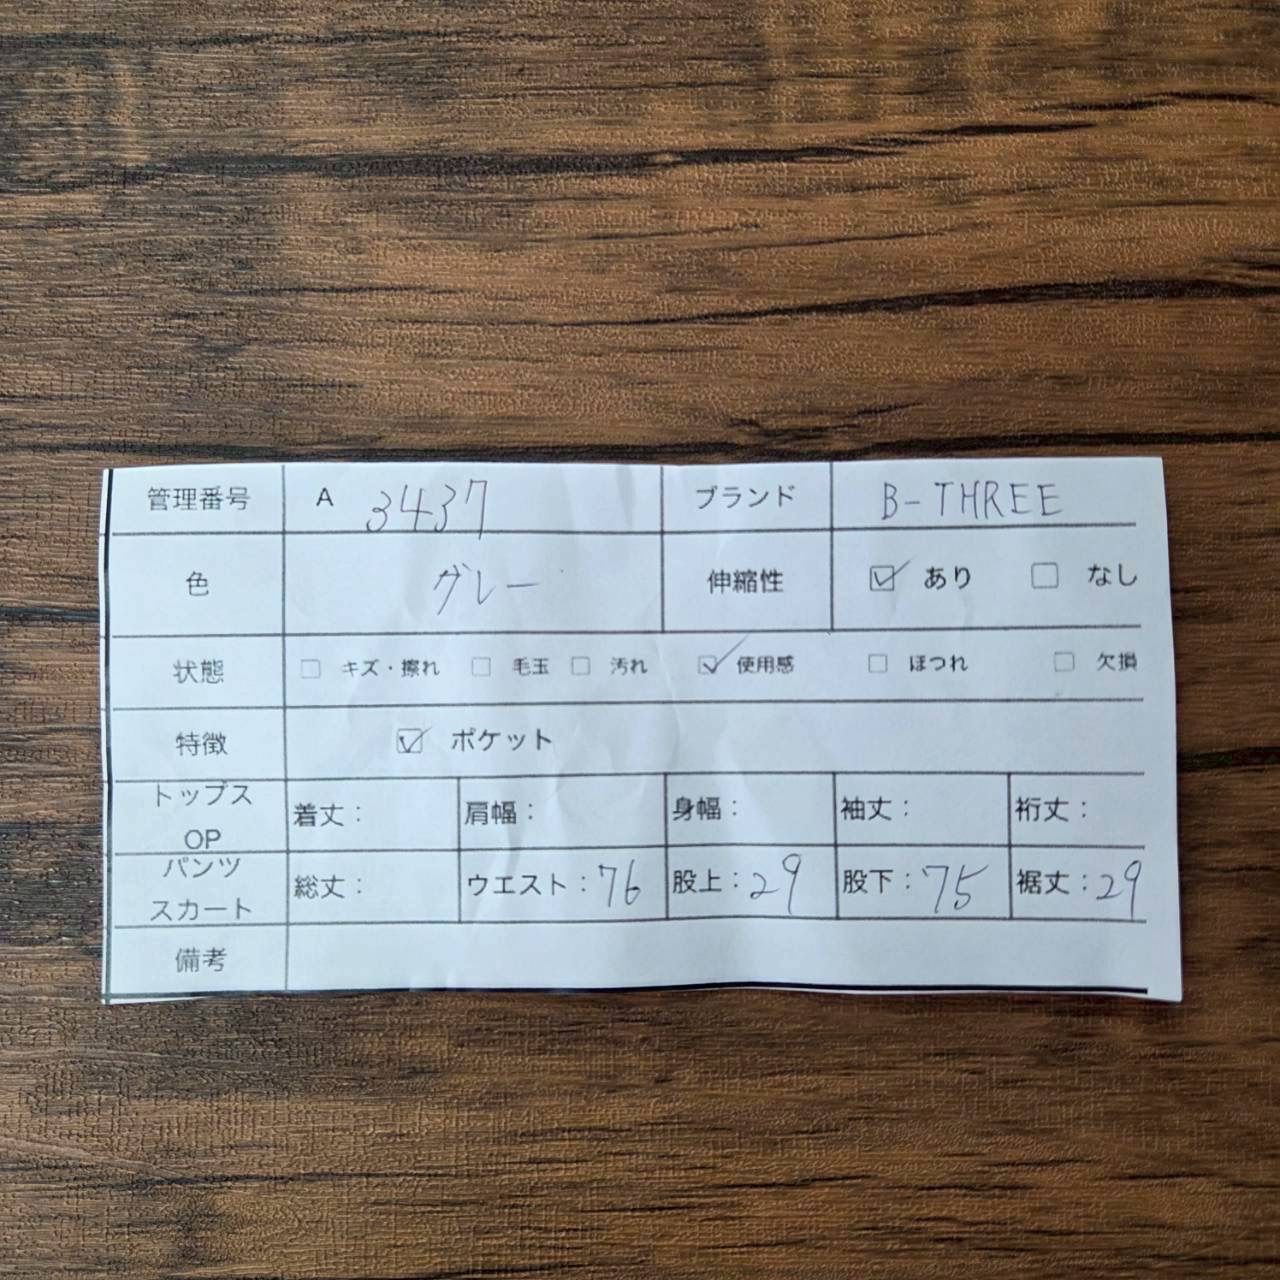 管理番号 A 3437 ブランド B-THREE
色 グレー 伸縮性 ☑ あり ☐ なし
状態 ☐ キズ・擦れ ☐ 毛玉 ☐ 汚れ ☑ 使用感 ☐ ほつれ ☐ 欠損
特徴 ☑ ポケット
トップス
OP 着丈： 肩幅： 身幅： 袖丈： 裄丈：
パンツ
スカート 総丈： ウエスト：76 股上：29 股下：75 裾丈：29
備考